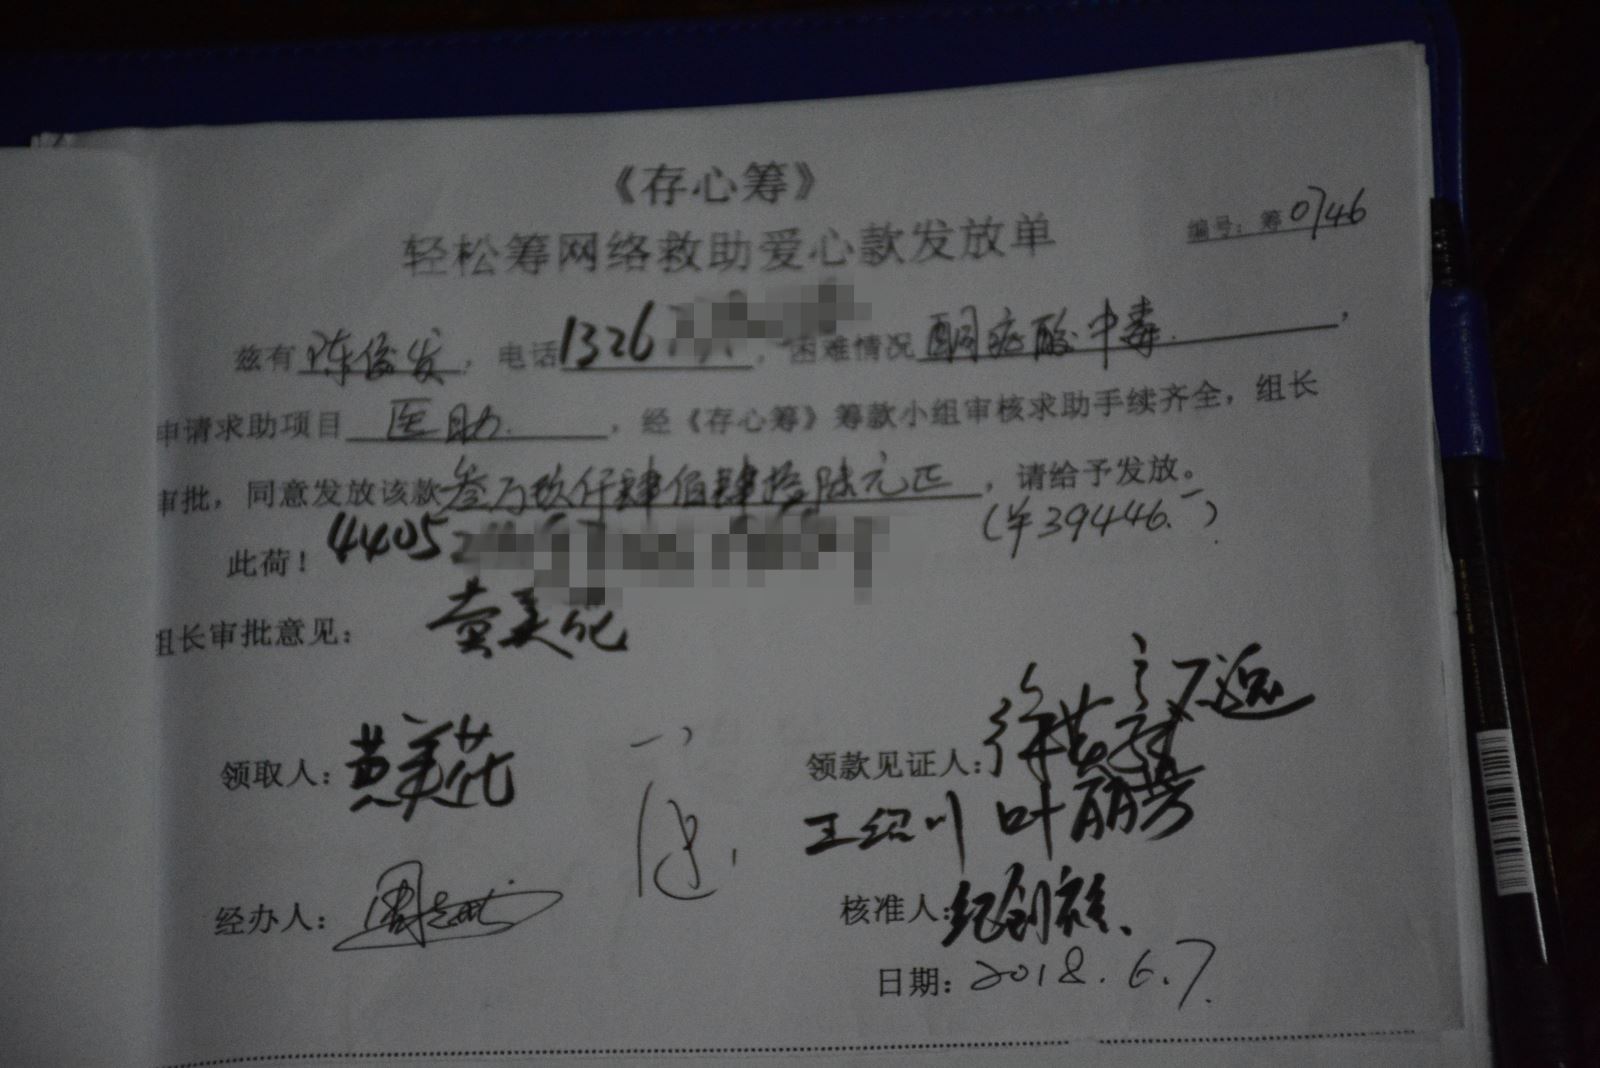 《存心筹》
轻松筹网络救助爱心款发放单
编号：筹0746
兹有陈俊发，电话1326，困难情况酮症酸中毒，
申请求助项目医助，经《存心筹》筹款小组审核求助手续齐全，组长
审批，同意发放该款叁万玖仟肆佰肆拾陆元正，请给予发放。
(¥39446.一)
此荷！4405
组长审批意见：黄美花
领取人：黄美花
领款见证人：
王绍川 叶丽芳
经办人：
核准人：纪创雄
日期：2018.6.7.